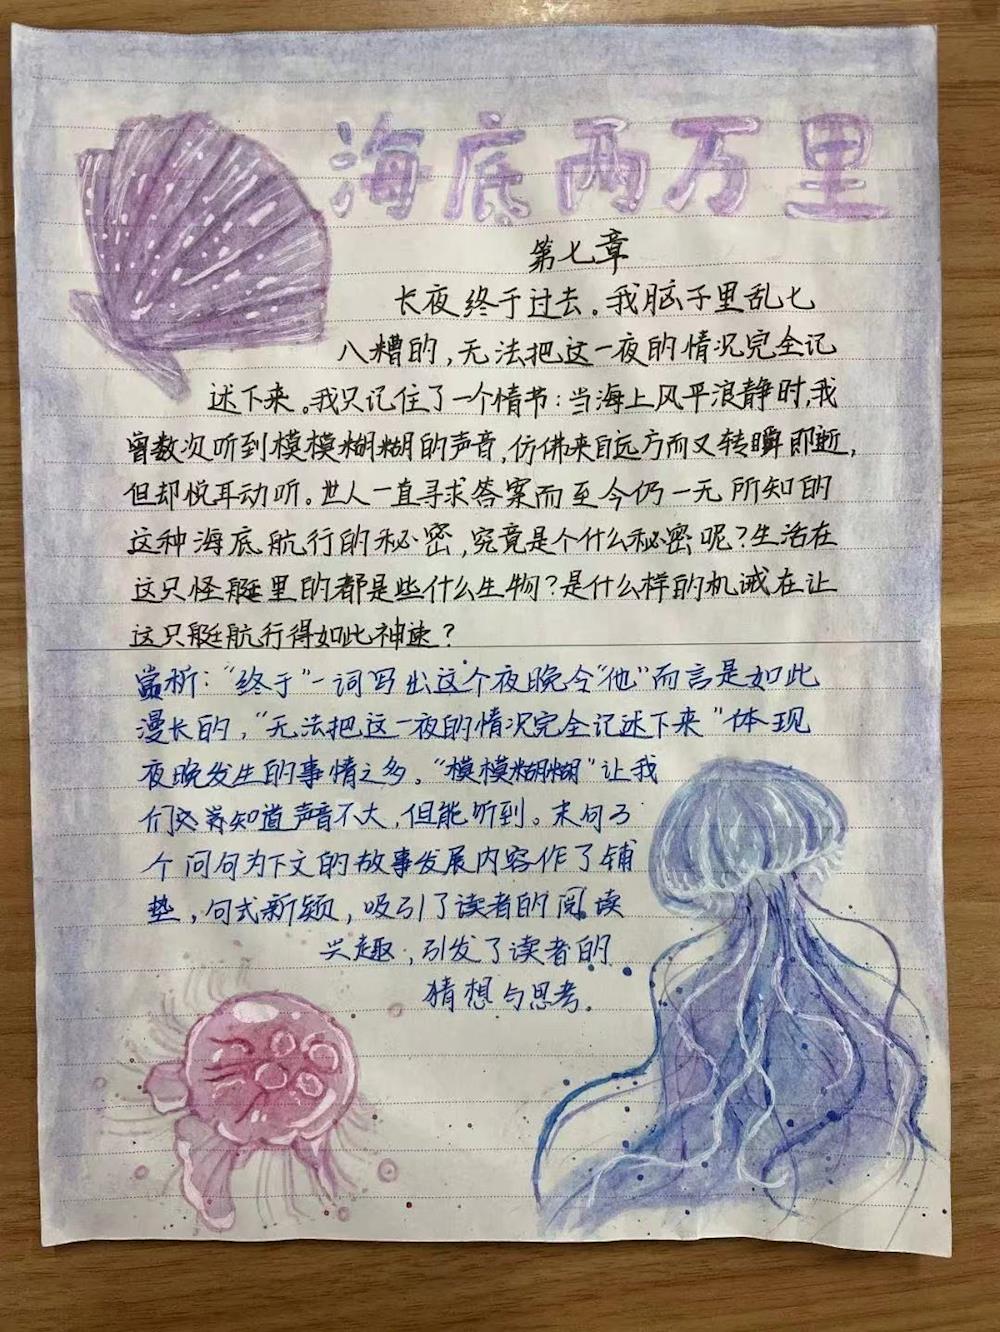 海底两万里
第七章
长夜终于过去。我脑子里乱七
八糟的,无法把这一夜的情况完全记
述下来。我只记住了一个情节:当海上风平浪静时,我
曾数次听到模模糊糊的声音,仿佛来自远方而又转瞬即逝,
但却悦耳动听。世人一直寻求答案而至今仍一无所知的
这种海底航行的秘密,究竟是个什么秘密呢?生活在
这只怪艇里的都是些什么生物?是什么样的机诫在让
这只艇航行得如此神速?
赏析:“终于”一词写出这个夜晚令“他”而言是如此
漫长的,“无法把这一夜的情况完全记述下来”体现
夜晚发生的事情之多。“模模糊糊”让我
们知道声音不大,但能听到。末句3
个问句为下文的故事发展内容作了铺
垫,句式新颖,吸引了读者的阅读
兴趣,引发了读者的
猜想与思考。